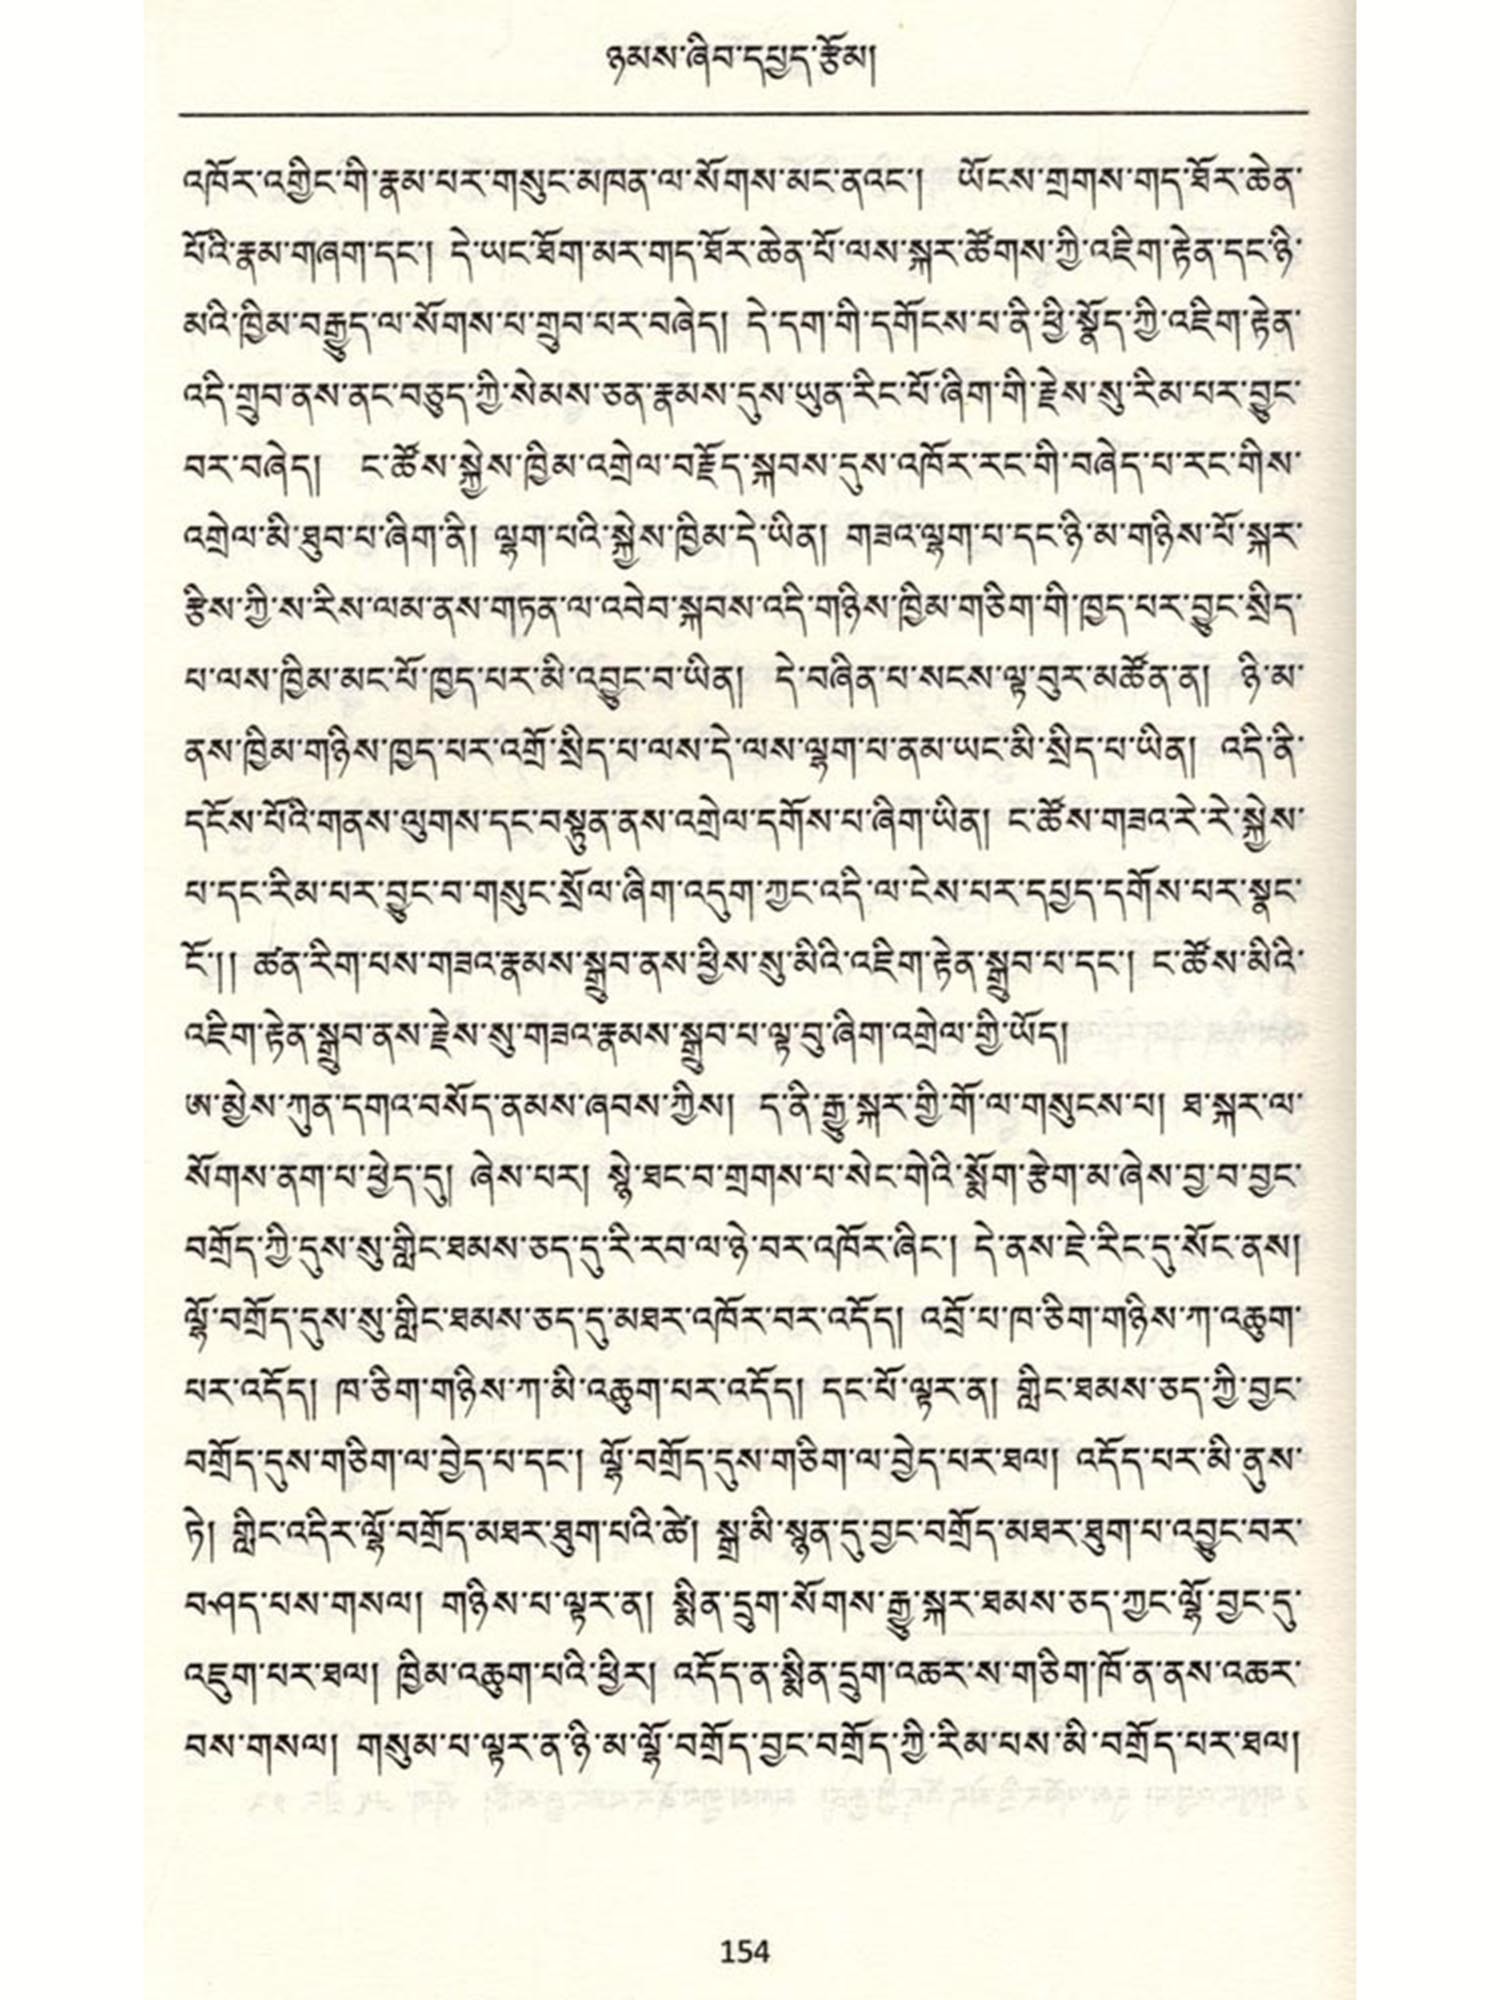 ཉམས་ཞིབ་དཔྱད་རྩོམ།
འཁོར་འགྱིང་གི་རྣམ་པར་གསུང་མཁན་ལ་སོགས་མང་ནའང་། ཡོངས་གྲགས་གད་ཐོར་ཆེན་
པོའི་རྣམ་གཞག་དང་། དེ་ཡང་ཐོག་མར་གད་ཐོར་ཆེན་པོ་ལས་སྐར་ཚོགས་ཀྱི་འཇིག་རྟེན་དང་ཉི་
མའི་ཁྱིམ་བརྒྱུད་ལ་སོགས་པ་གྲུབ་པར་བཞེད། དེ་དག་གི་དགོངས་པ་ནི་ཕྱི་སྣོད་ཀྱི་འཇིག་རྟེན་
འདི་གྲུབ་ནས་ནང་བཅུད་ཀྱི་སེམས་ཅན་རྣམས་དུས་ཡུན་རིང་པོ་ཞིག་གི་རྗེས་སུ་རིམ་པར་བྱུང་
བར་བཞེད། ང་ཚོས་སྐྱེས་ཁྱིམ་འགྲེལ་བརྗོད་སྐབས་དུས་འཁོར་རང་གི་བཞེད་པ་རང་གིས་
འགྲེལ་མི་ཐུབ་པ་ཞིག་ནི། ལྷག་པའི་སྐྱེས་ཁྱིམ་དེ་ཡིན། གཟའ་ལྷག་པ་དང་ཉི་མ་གཉིས་པོ་སྐར་
རྩིས་ཀྱི་ས་རིས་ལམ་ནས་གཏན་ལ་འབེབ་སྐབས་འདི་གཉིས་ཁྱིམ་གཅིག་གི་ཁྱད་པར་བྱུང་སྲིད་
པ་ལས་ཁྱིམ་མང་པོ་ཁྱད་པར་མི་འབྱུང་བ་ཡིན། དེ་བཞིན་པ་སངས་ལྟ་བུར་མཚོན་ན། ཉི་མ་
ནས་ཁྱིམ་གཉིས་ཁྱད་པར་འགྲོ་སྲིད་པ་ལས་དེ་ལས་ལྷག་པ་ནམ་ཡང་མི་སྲིད་པ་ཡིན། འདི་ནི་
དངོས་པོའི་གནས་ལུགས་དང་བསྟུན་ནས་འགྲེལ་དགོས་པ་ཞིག་ཡིན། ང་ཚོས་གཟའ་རེ་རེ་སྐྱེས་
པ་དང་རིམ་པར་བྱུང་བ་གསུང་སྲོལ་ཞིག་འདུག་ཀྱང་འདི་ལ་ངེས་པར་དཔྱད་དགོས་པར་སྣང་
ངོ་།། ཚན་རིག་པས་གཟའ་རྣམས་སྒྲུབ་ནས་ཕྱིས་སུ་མིའི་འཇིག་རྟེན་སྒྲུབ་པ་དང་། ང་ཚོས་མིའི་
འཇིག་རྟེན་སྒྲུབ་ནས་རྗེས་སུ་གཟའ་རྣམས་སྒྲུབ་པ་ལྟ་བུ་ཞིག་འགྲེལ་གྱི་ཡོད།
ཨ་མྱེས་ཀུན་དགའ་བསོད་ནམས་ཞབས་ཀྱིས། ད་ནི་རྒྱུ་སྐར་གྱི་གོ་ལ་གསུངས་པ། ཐ་སྐར་ལ་
སོགས་ནག་པ་ཕྱེད་དུ། ཞེས་པར། སྙེ་ཐང་བ་གྲགས་པ་སེང་གེའི་སྨོག་རྩེག་མ་ཞེས་བྱ་བ་བྱང་
བགྲོད་ཀྱི་དུས་སུ་གླིང་ཐམས་ཅད་དུ་རི་རབ་ལ་ཉེ་བར་འཁོར་ཞིང་། དེ་ནས་ཇེ་རིང་དུ་སོང་ནས།
ལྷོ་བགྲོད་དུས་སུ་གླིང་ཐམས་ཅད་དུ་མཐར་འཁོར་བར་འདོད། འབྲོ་པ་ཁ་ཅིག་གཉིས་ཀ་འཆུག་
པར་འདོད། ཁ་ཅིག་གཉིས་ཀ་མི་འཆུག་པར་འདོད། དང་པོ་ལྟར་ན། གླིང་ཐམས་ཅད་ཀྱི་བྱང་
བགྲོད་དུས་གཅིག་ལ་བྱེད་པ་དང་། ལྷོ་བགྲོད་དུས་གཅིག་ལ་བྱེད་པར་ཐལ། འདོད་པར་མི་ནུས་
ཏེ། གླིང་འདིར་ལྷོ་བགྲོད་མཐར་ཐུག་པའི་ཚེ། སྒྲ་མི་སྙན་དུ་བྱང་བགྲོད་མཐར་ཐུག་པ་འབྱུང་བར་
བཤད་པས་གསལ། གཉིས་པ་ལྟར་ན། སྨིན་དྲུག་སོགས་རྒྱུ་སྐར་ཐམས་ཅད་ཀྱང་ལྷོ་བྱང་དུ་
འཇུག་པར་ཐལ། ཁྱིམ་འཆུག་པའི་ཕྱིར། འདོད་ན་སྨིན་དྲུག་འཆར་ས་གཅིག་ཁོ་ན་ནས་འཆར་
བས་གསལ། གསུམ་པ་ལྟར་ན་ཉི་མ་ལྷོ་བགྲོད་བྱང་བགྲོད་ཀྱི་རིམ་པས་མི་བགྲོད་པར་ཐལ།
154